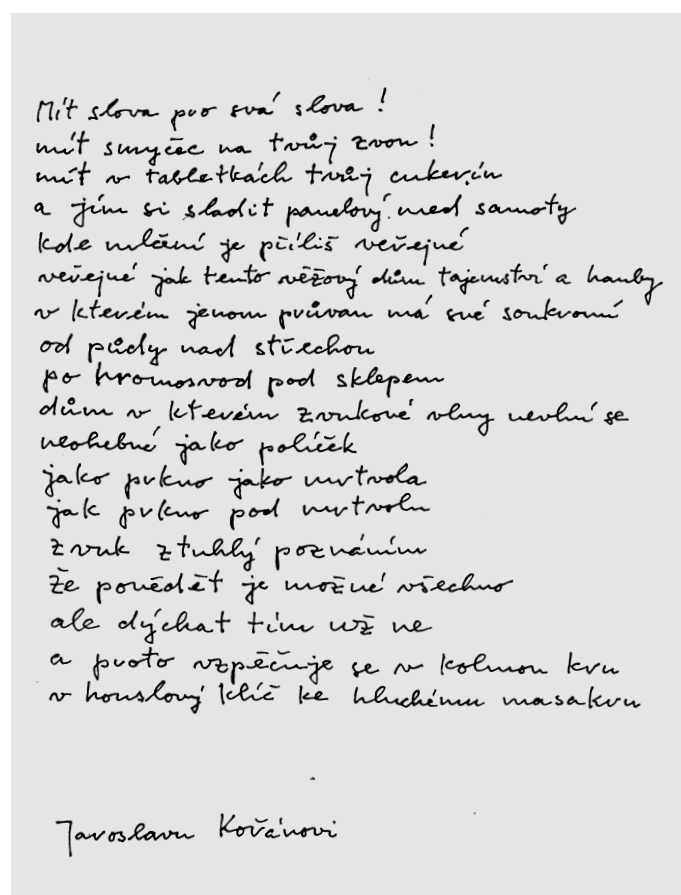 Mít slova pro svá slova !
mít smyčec na tvůj zvon !
mít v tabletkách tvůj cukerin
a jím si sladit panelový med samoty
kde mlčení je příliš veřejné
veřejné jak tento věžový dům tajemství a hanby
v kterém jenom průvan má své soukromí
od půdy nad střechou
po hromosvod pod sklepem
dům v kterém zvukové vlny nevlní se
neohebné jako políček
jako prkno jako mrtvola
jak prkno pod mrtvolu
zvuk ztuhlý poznáním
že povědět je možné všechno
ale dýchat tím už ne
a proto vzpěčuje se v kolmou kru
v houslový klíč ke hluchému masakru
Jaroslavu Kořánovi